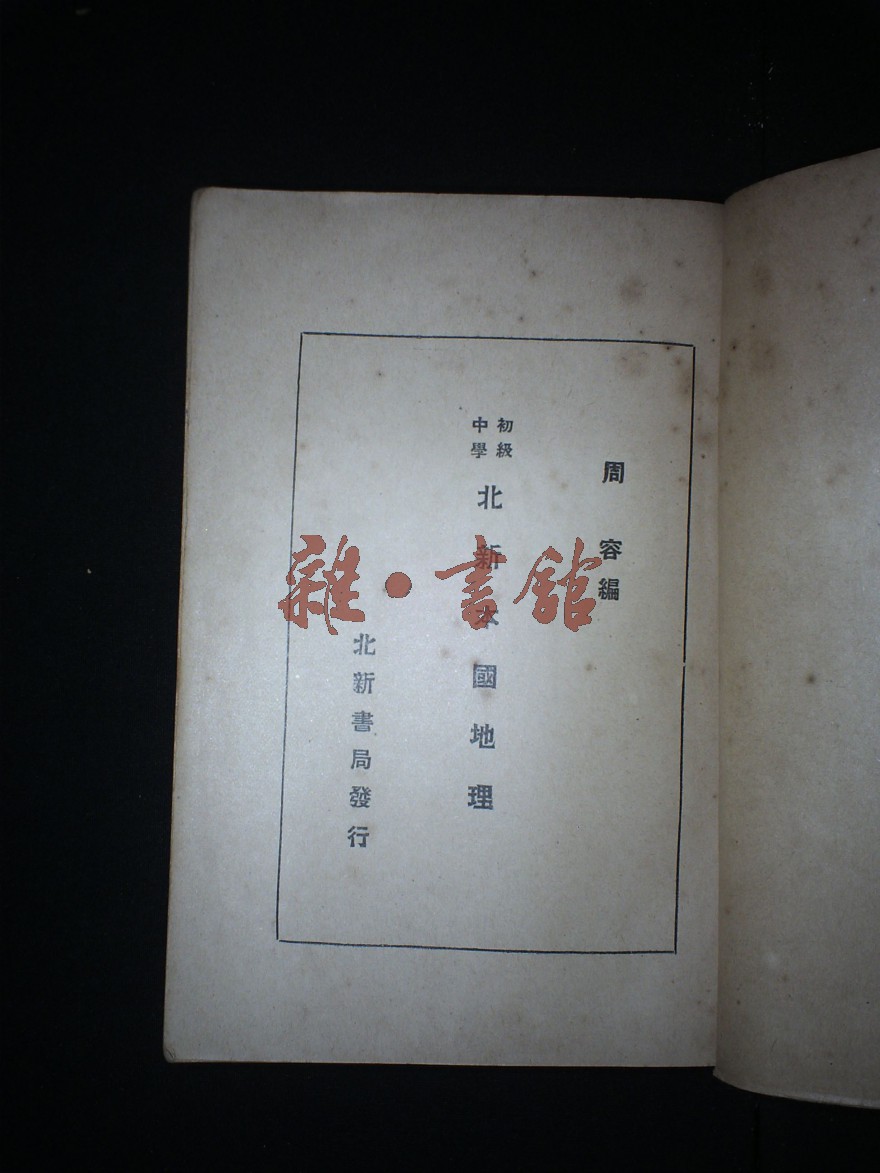 周容編
初級
中學
北新本國地理
北新書局發行
雜·書館